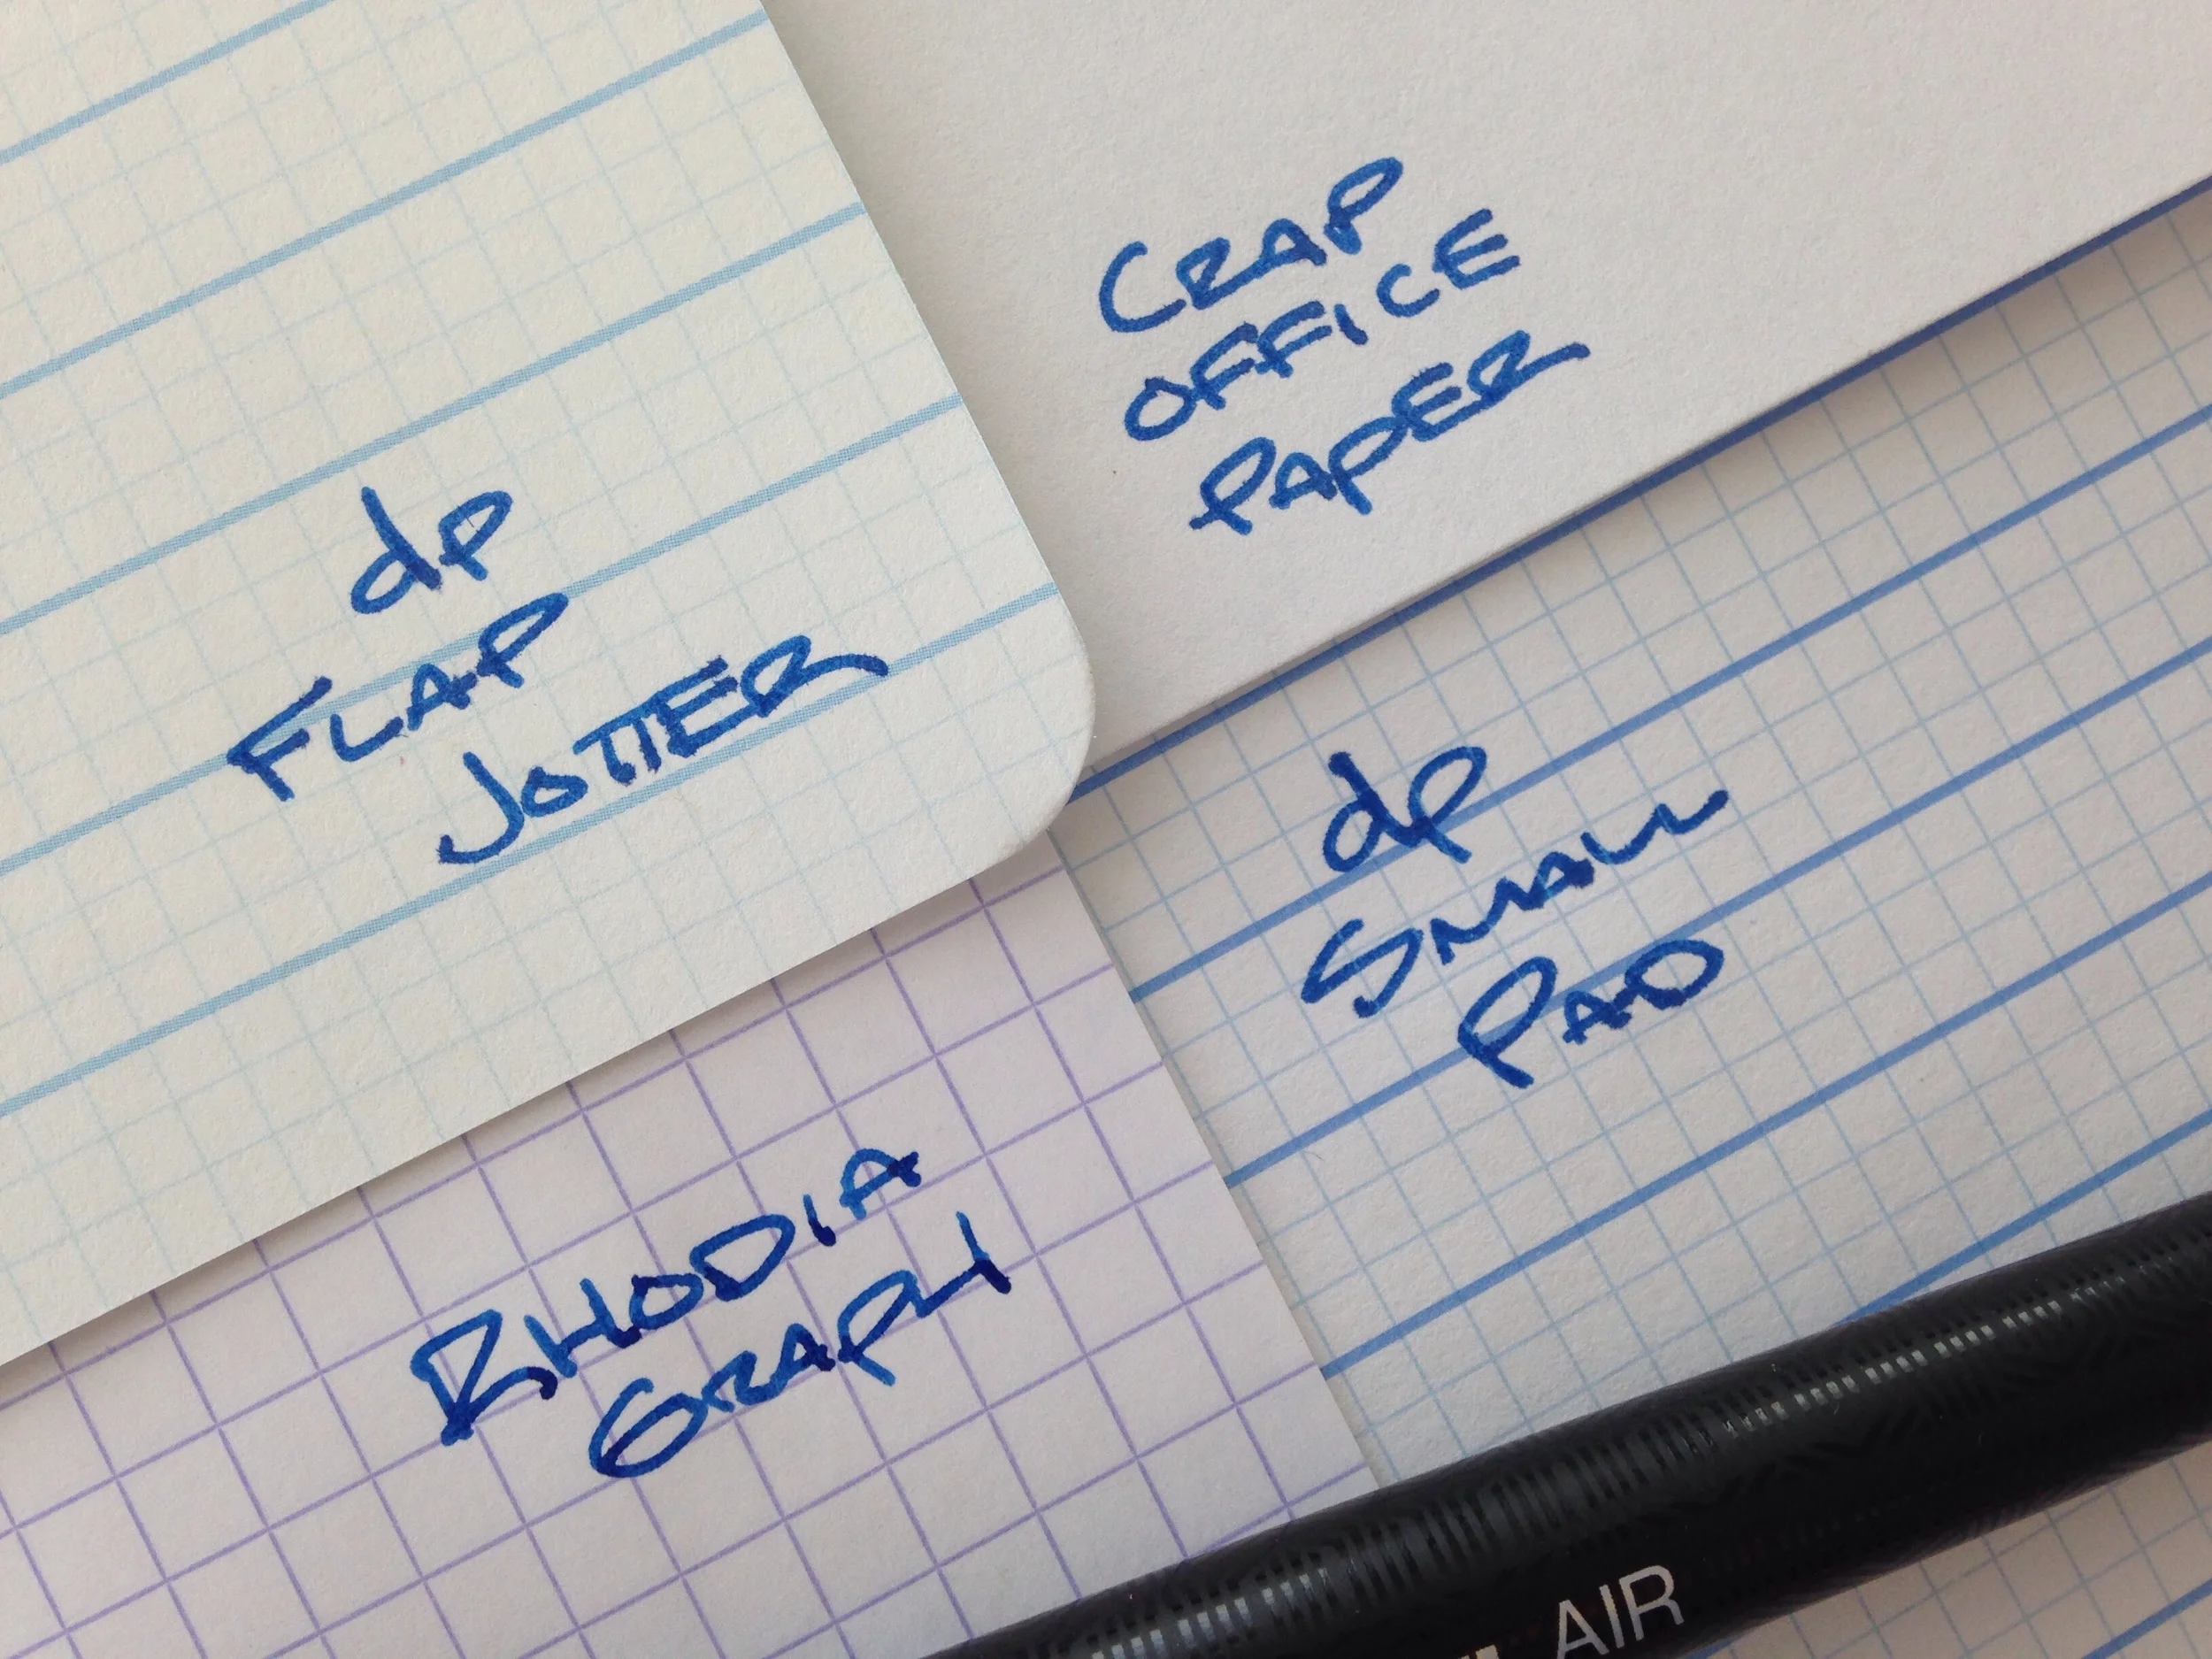 CRAP
OFFICE
PAPER
dP
FLAP
JOTTER
dP
SMALL
PAD
RHODIA
GRAPH
AIR